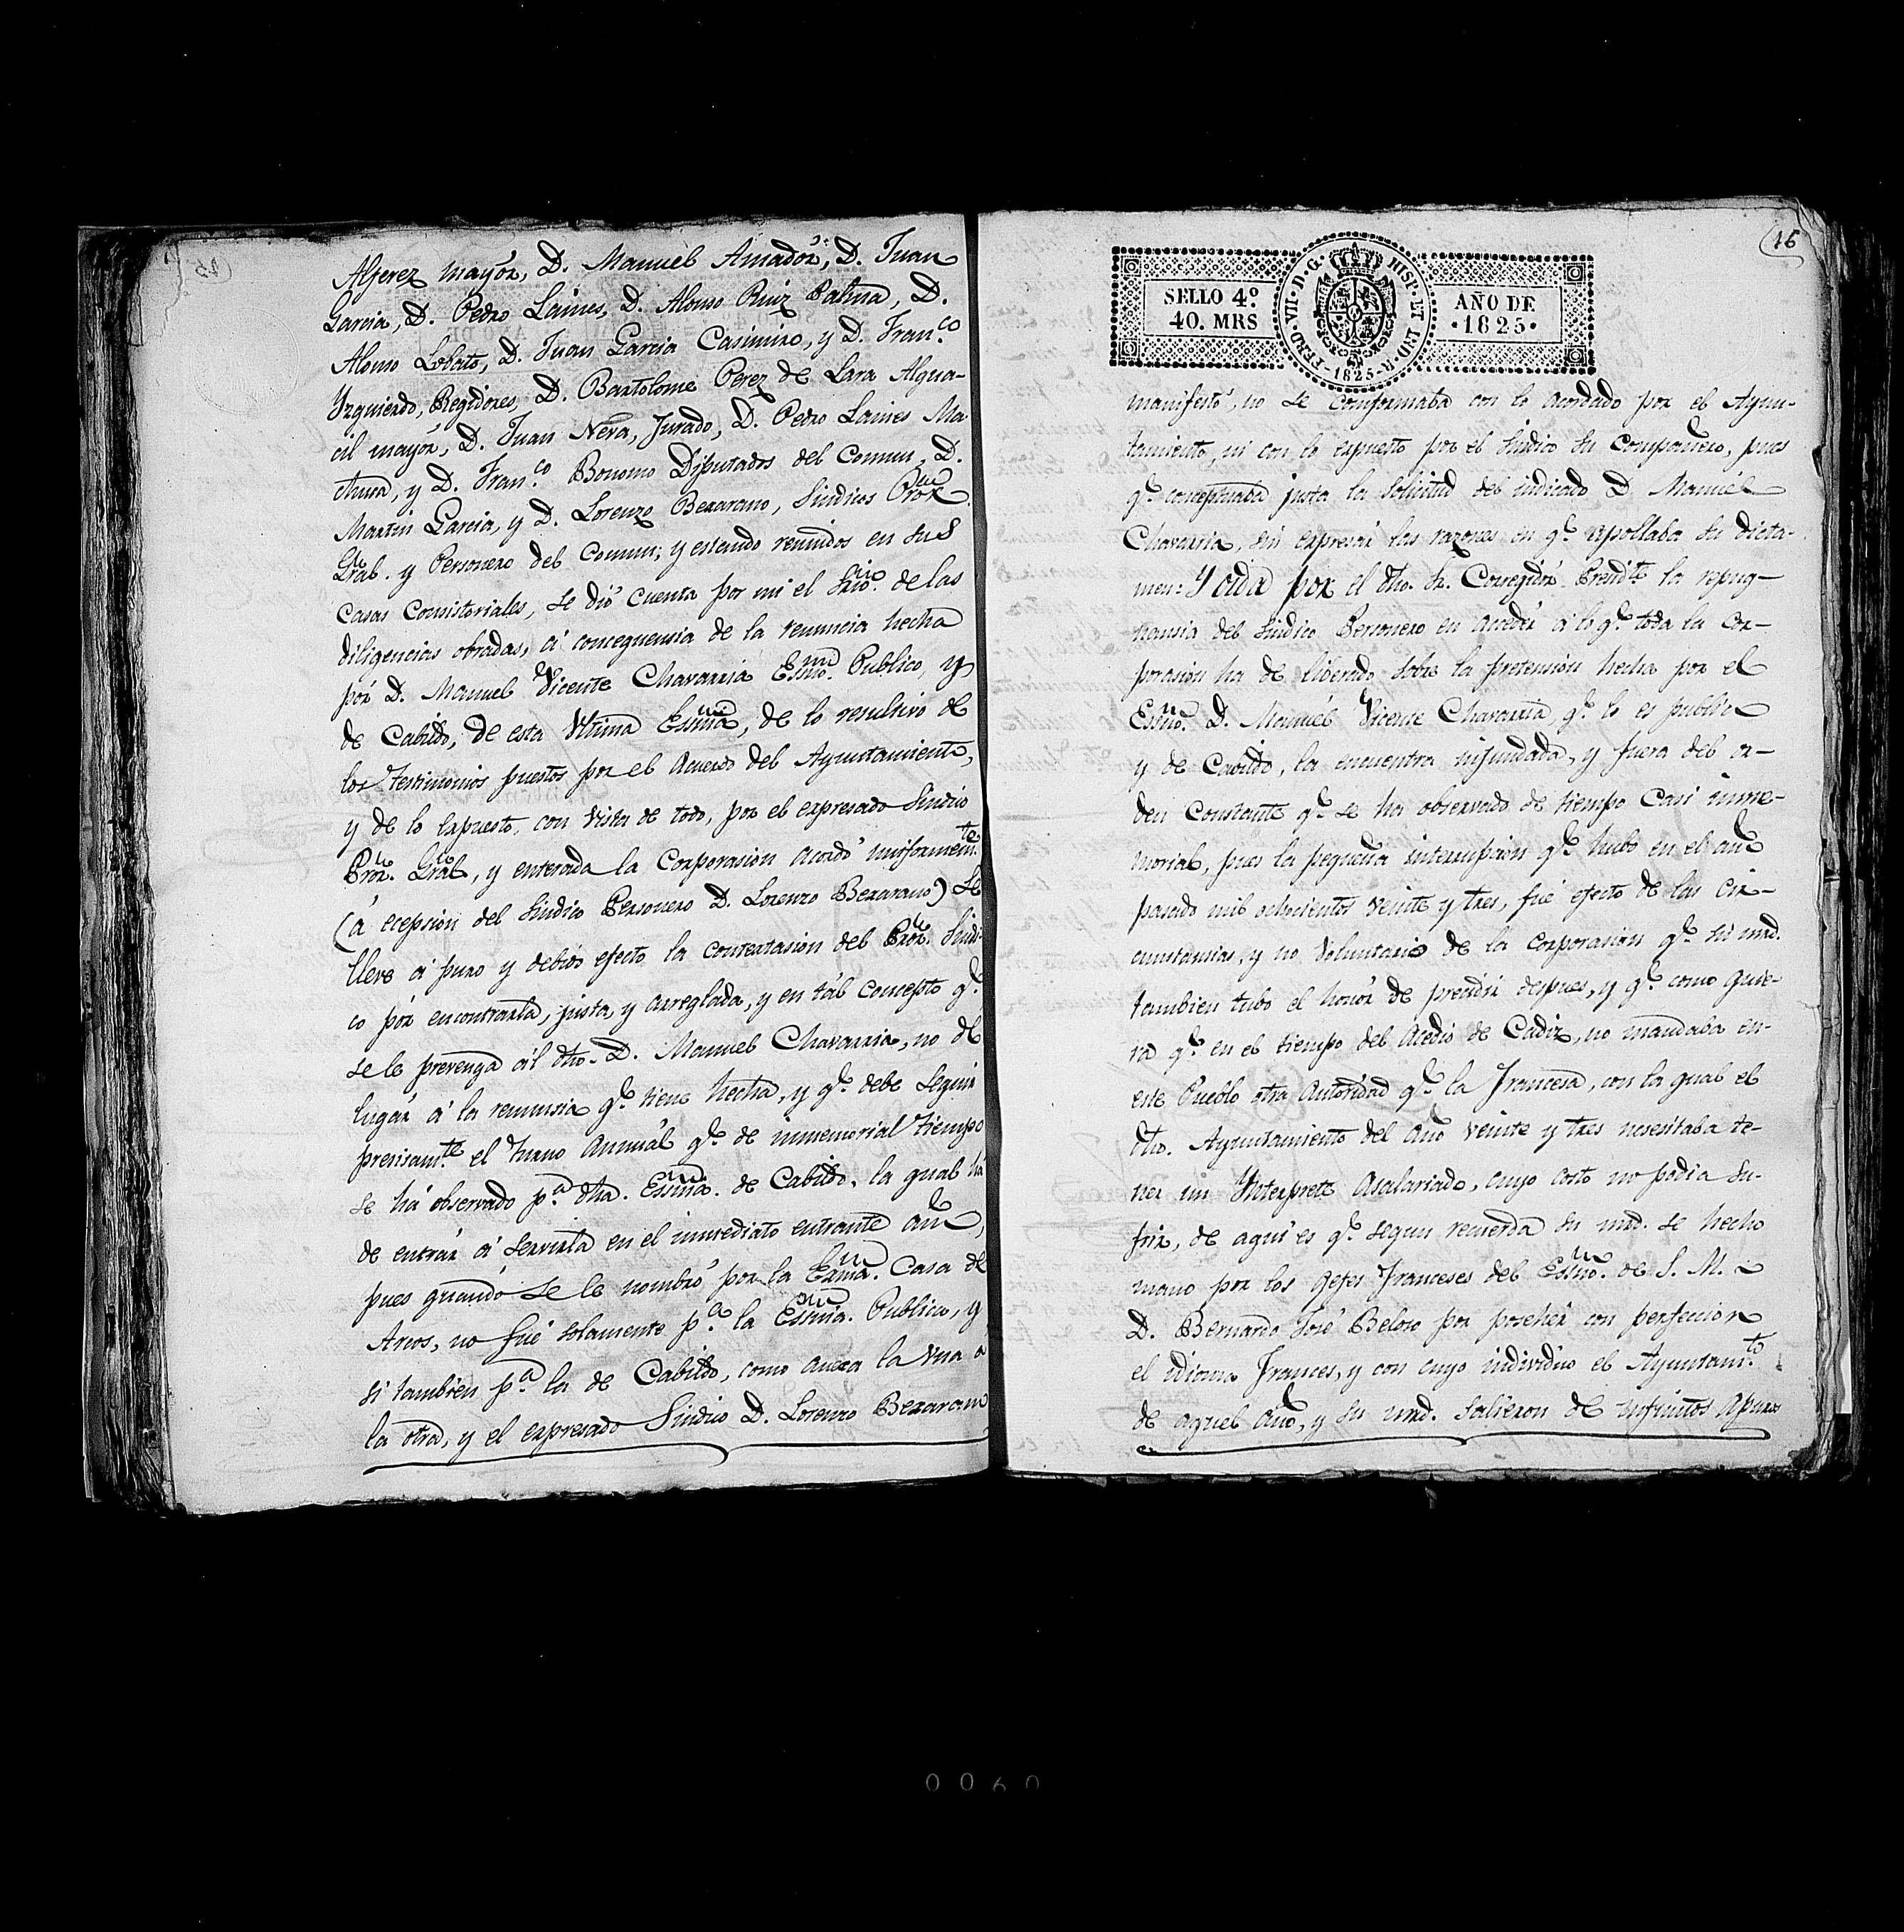 Alferez mayór, D. Manuel Amadór, D. Juan
Garcia, D. Pedro Laines, D. Alonso Ruiz Palma, D.
Alonso Lobato, D. Juan Garcia Casimiro, y D. Fran.co
Yzquierdo, Regidores, D. Bartolome Perez de Lara Algua-
cil mayór, D. Juan Neva, Jurado, D. Pedro Laines Ma-
chua, y D. Fran.co Bonomo Diputados del Comun, D.
Martin Garcia, y D. Lorenzo Bexarano, Sindicos Pror.
Gral. y Personero del Comun; y estando reunidos en sus
Casas Consistoriales, se dió cuenta por mi el Srio. de las
diligencias obradas, á consequensia de la renuncia hecha
pór D. Manuel Vicente Chavarria Essno. Publico, y
de Cabildo, de esta Vltima Essnia, de lo resultivo de
los testimonios puestos por el Acuerdo del Ayuntamiento,
y de lo expuesto, con vista de todo, por el expresado Sindico
Pror. Gral, y enterada la Corporasion acordó uniformem.te
(á ecepsion del Sindico Personero D. Lorenzo Bexarano) se
lleve á puro y debido efecto la contextasion del Pror. Sindi-
co pór encontrarla, justa, y arreglada, y en tál concepto q.e
se le prevenga ál dho. D. Manuel Chavarria, no dé
lugár á la renunsia q.e tiene hecha, y q.e debe seguir
presisam.te el turno Annuál q.e de inmemorial tiempo
se há observado p.a dha. Essnia. de Cabildo, la qual há
de entrár á servirla en el immediato entrante año,
pues quando se le nombró por la Exma. Casa de
Arcos, no fué solamente p.a la Essnia. Publica, y
si tambien p.a la de Cabildo, como anexa la vna á
la otra, y el expresado Sindico D. Lorenzo Bexarano
16
SELLO 4º
40. MRS
FERD·VII·D·G· HISP·ET IND·R·1825
AÑO DE
·1825·
manifestó, no se comformaba con lo acordado por el Ayun-
tamiento, ni con lo expuesto por el Sindico su Compañero, pues
q.e conceptuaba justa la solisitud del indicado D. Manuel
Chavarria, sin expresar las razones en q.e apollaba su dicta-
men: Y oida por el dho. Sr. Corregidór Presid.te la repug-
nansia del Sindico Personero en accedér á lo q.e toda la Cor-
porasion ha de liberado sobre la pretension hecha por el
Essno. D. Manuél Vicente Chavarria, q.e lo es publico
y de Cavildo, la encuentra infundada, y fuera del or-
den Constante q.e se ha observado de tiempo Casi inme-
morial, pues la pequeña interrupcion q.e hubo en el año
pasado mil ochocientos veinte y tres, fué efecto de las cir-
cunstansias, y no voluntario de la corporasion q.e su mrd.
tambien tubo el honór de presidir despues, y q.e como quie-
ra q.e en el tiempo del Acedio de Cadiz, no mandaba en-
este Pueblo otra Autoridad q.e la Francesa, con la qual el
dho. Ayuntamiento del año veinte y tres nesesitaba te-
ner un Ynterprete Asalariado, cuyo costo no podia su-
frir, de aqui es q.e segun recuerda su mrd. se hecho
mano por los Gefes Franceses del Essno. de S. M.
D. Bernardo José Beloso por poseher con perfeccion
el idioma Frances, y con cuyo individuo el Ayuntam.to
de aquel año, y su mrd. salieron de infinitos Apuros
0060